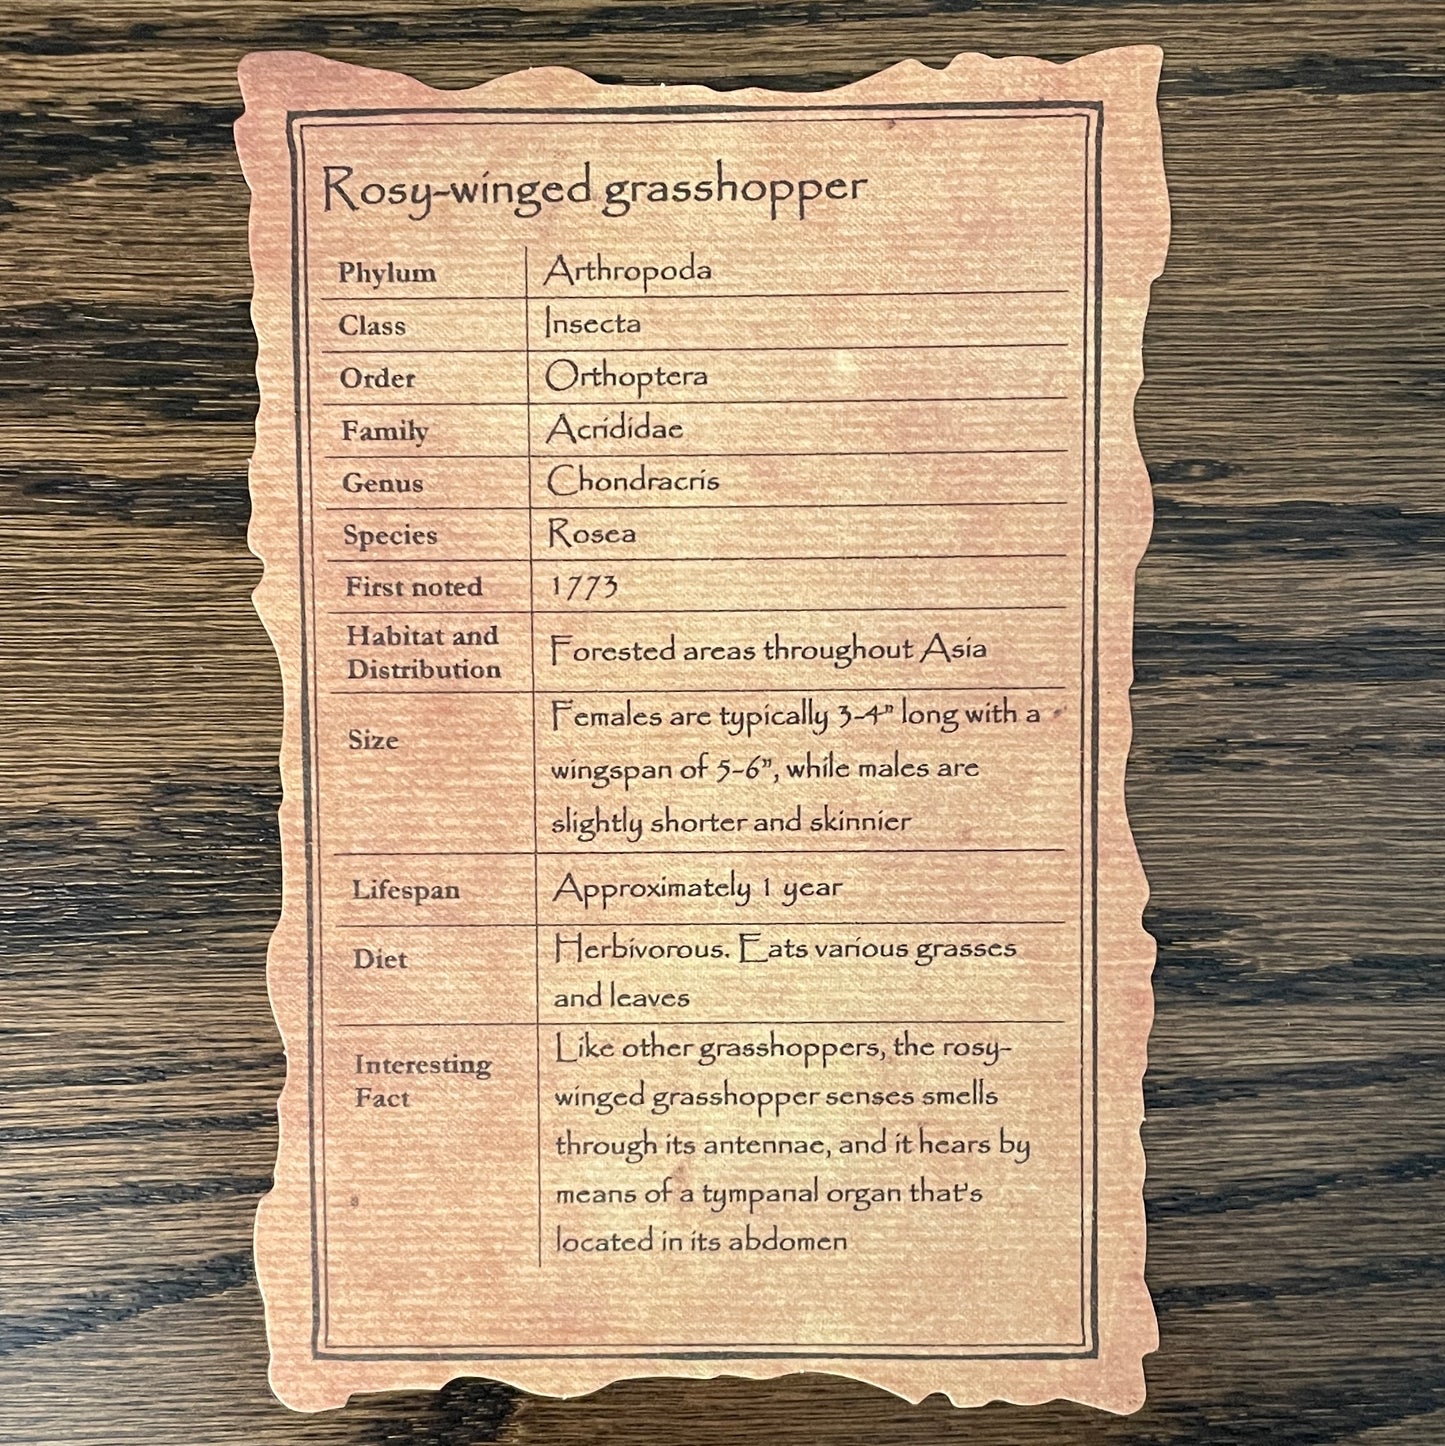 Rosy-winged grasshopper
Phylum Arthropoda
Class Insecta
Order Orthoptera
Family Acrididae
Genus Chondracris
Species Rosea
First noted 1773
Habitat and
Distribution
Forested areas throughout Asia
Size
Females are typically 3-4" long with a
wingspan of 5-6", while males are
slightly shorter and skinnier
Lifespan Approximately 1 year
Diet
Herbivorous. Eats various grasses
and leaves
Interesting
Fact
Like other grasshoppers, the rosy-
winged grasshopper senses smells
through its antennae, and it hears by
means of a tympanal organ that's
located in its abdomen